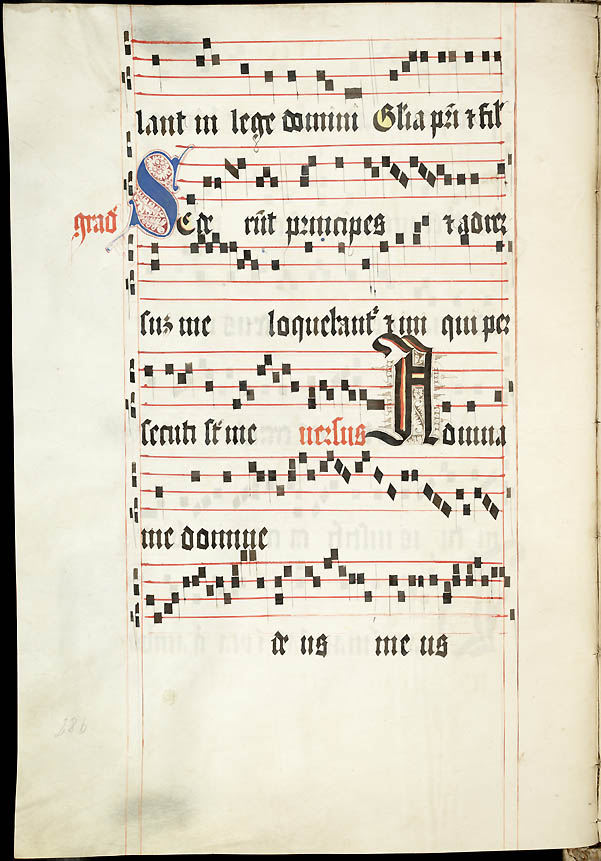 lant in lege domini Glia pri ⁊ fil
grad Sede rūt principes ⁊ adver
suz me loquebant⁊ ⁊ ini qui per
secuti st me versus Adiuua
me domine
de us me us